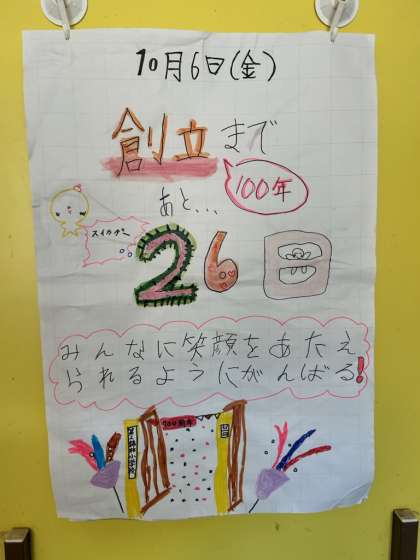 10月6日(金)
創立まで
100年
あと...
26日
みんなに笑顔をあたえ
られるようにがんばる!